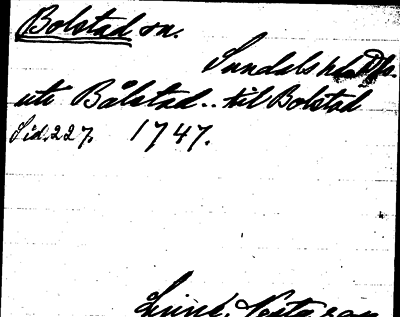 Bolstad sn.
Sundals hd
uti Bålstad.. til Bolstad
Sid. 227. 1747.